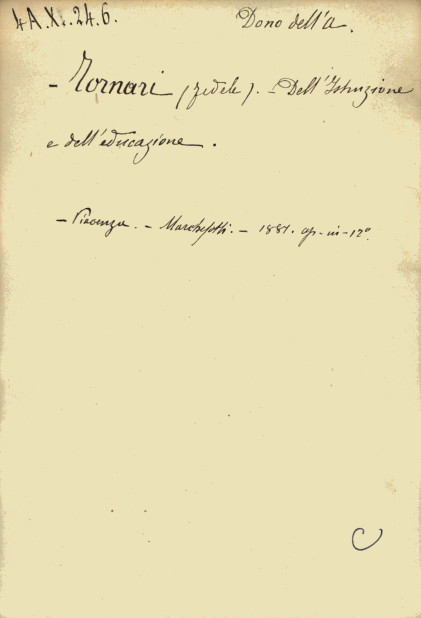 4A.XI.24.6. Dono dell'A.
- Tornari (Fedele). - Dell'Istruzione
e dell'educazione.
- Piacenza. - Marchesotti. - 1881. op. in-12º.
C